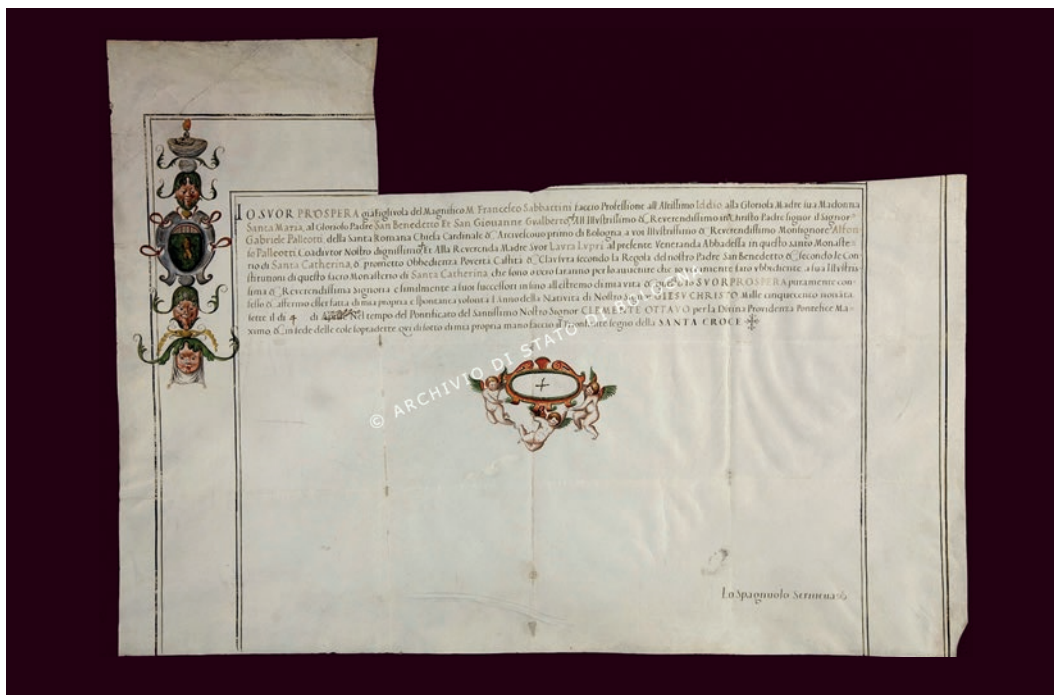 IO SVOR PROSPERA già figlivola del Magnifico M. Francesco Sabbattini faccio Professione all'Altissimo Iddio alla Gloriosa Madre sua Madonna
Santa Maria, al Glorioso Padre San Benedetto Et San Giouanne Gualberto, All'Illvstrissimo & Reverendissimo in Christo Padre signor il Signor
Gabriele Paleotti, della Santa Romana Chiesa Cardinale & Arcivescouo primo di Bologna, a voi Illvstrissimo & Reverendissimo Monsignore Alfon
so Paleotti Coadivtor Nostro dignissimo, Et Alla Reverenda Madre Svor Lavra Lvpri al presente Veneranda Abbadessa in questo santo Monaste-
rio di Santa Catherina, & prometto Obbedienza Povertà Castità & Clavsvra secondo la Regola del nostro Padre San Benedetto & secondo le Con
stitutioni di questo sacro Monasterio di Santa Catherina che sono o vero saranno per lo auuenire che nouamente sarò vbbidiente a sua Illvstris
sima & Reverendissima Signoria e similmente a suoi successori in sino all'estremo di mia vita & IO SVOR PROSPERA puramente con-
fesso & affermo esser fatta di mia propria e spontanea volontà l'Anno della Natività di Nostro GIESV CHRISTO Mille cinquecento novanta
sette il dì 4 di Nel tempo del Pontificato del Santissimo Nostro Signor CLEMENTE OTTAVO per la Divina Providenza Pontefice Ma-
ximo & in fede delle cose sopradette qui di sotto di mia propria mano faccio il segno della SANTA CROCE
© ARCHIVIO DI STATO DI BOLOGNA
Lo Spagnuolo Scriueua